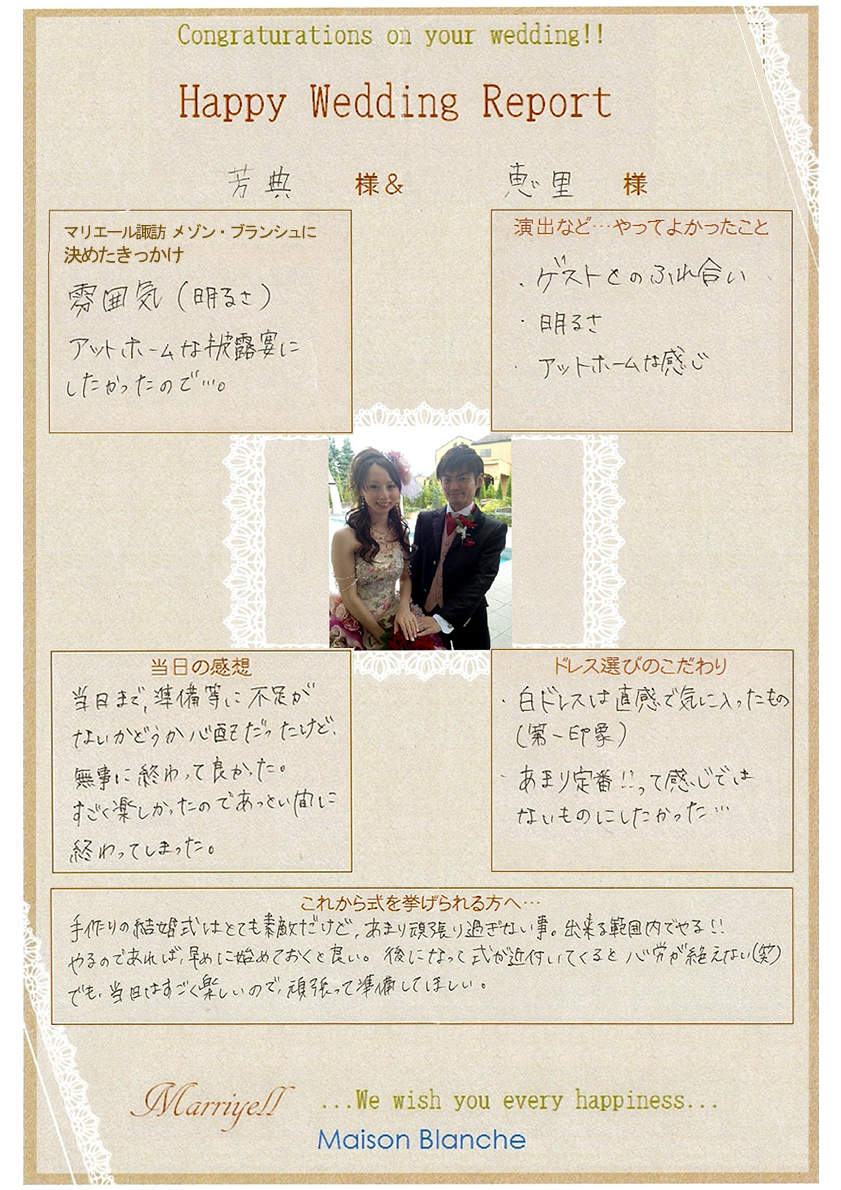 Congraturations on your wedding!!
Happy Wedding Report
芳典 様& 恵里 様
マリエール諏訪 メゾン・ブランシュに
決めたきっかけ
雰囲気(明るさ)
アットホームな披露宴に
したかったので…。
演出など…やってよかったこと
・ゲストとのふれ合い
・明るさ
・アットホームな感じ
当日の感想
当日まで、準備等に不足が
ないかどうか心配だったけど、
無事に終わって良かった。
すごく楽しかったのであっとい間に
終わってしまった。
ドレス選びのこだわり
・白ドレスは直感で気に入ったもの
(第一印象)
・あまり定番!!って感じでは
ないものにしたかった…
これから式を挙げられる方へ…
手作りの結婚式はとても素敵だけど、あまり頑張り過ぎない事。出来る範囲内でやる!!
やるのであれば、早めに始めておくと良い。後になって式が近付いてくると心労が絶えない(笑)
でも、当日はすごく楽しいので、頑張って準備してほしい。
Marriyell ...We wish you every happiness...
Maison Blanche